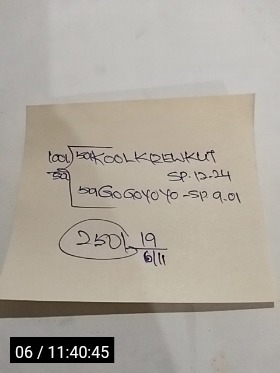 1001 50KOOLKREWKUT
50 SP.12.24
50GOGOYOYO-SP.9.01
2501 19
6/11
06 / 11:40:45